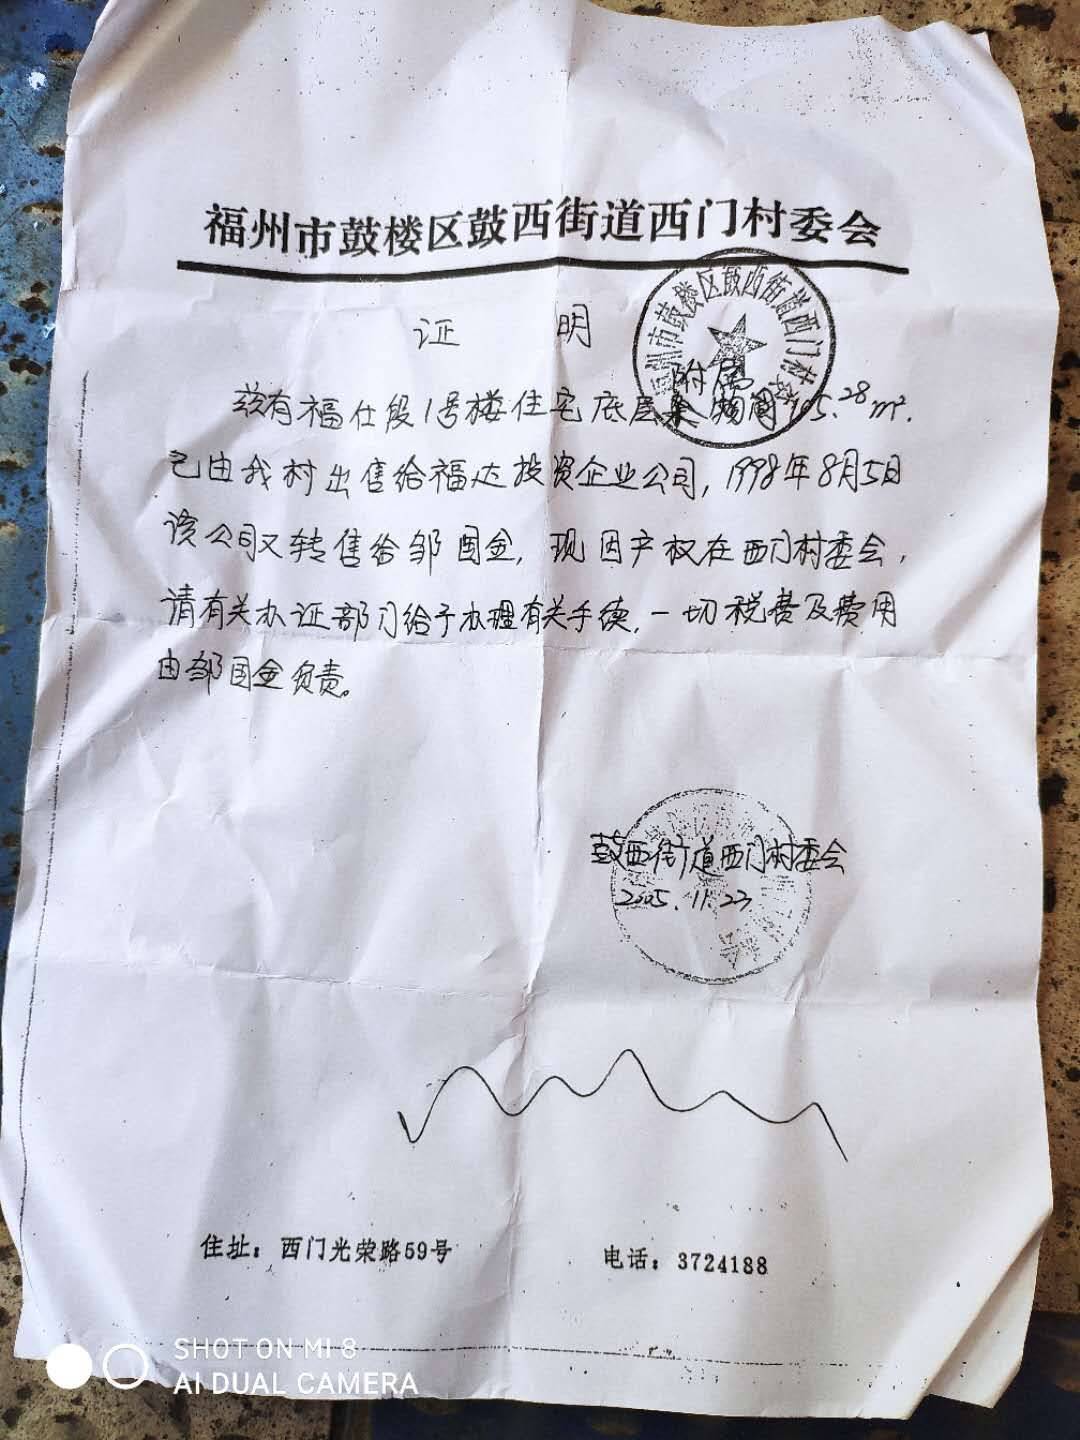 福州市鼓楼区鼓西街道西门村委会
证 明
兹有福仕段1号楼住宅底层附属 间105.28m².
已由我村出售给福达投资企业公司,1998年8月5日
该公司又转售给邹国金,现因产权在西门村委会,
请有关办证部门给予办理有关手续,一切税费及费用
由邹国金负责。
福州市鼓楼区鼓西街道西门村委
鼓西街道西门村委会
2005.11.23
住址:西门光荣路59号
电话:3724188
SHOT ON MI 8
AI DUAL CAMERA